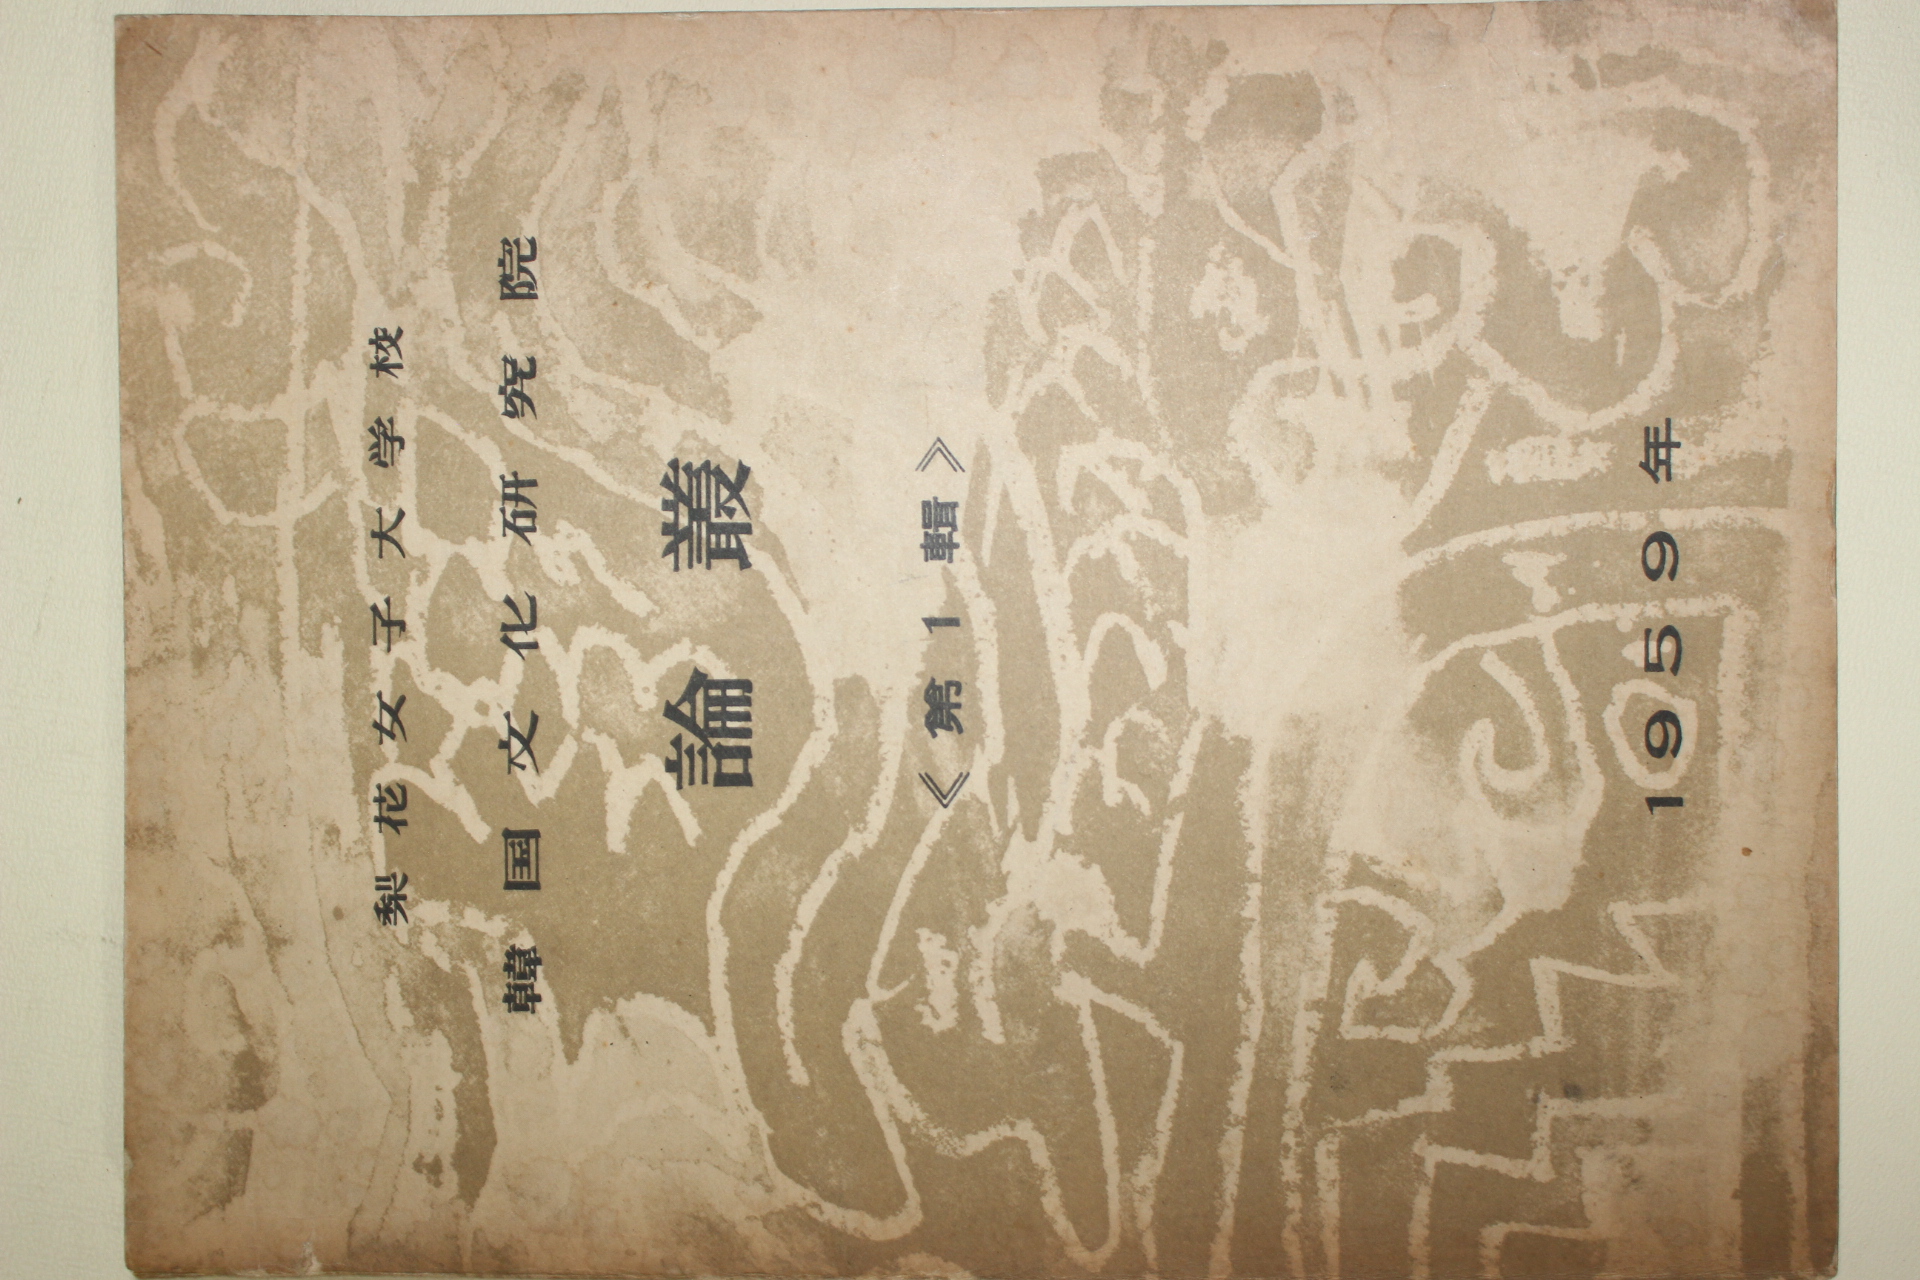 梨花女子大学校
韓国文化研究院
論叢
《第1輯》
1959年